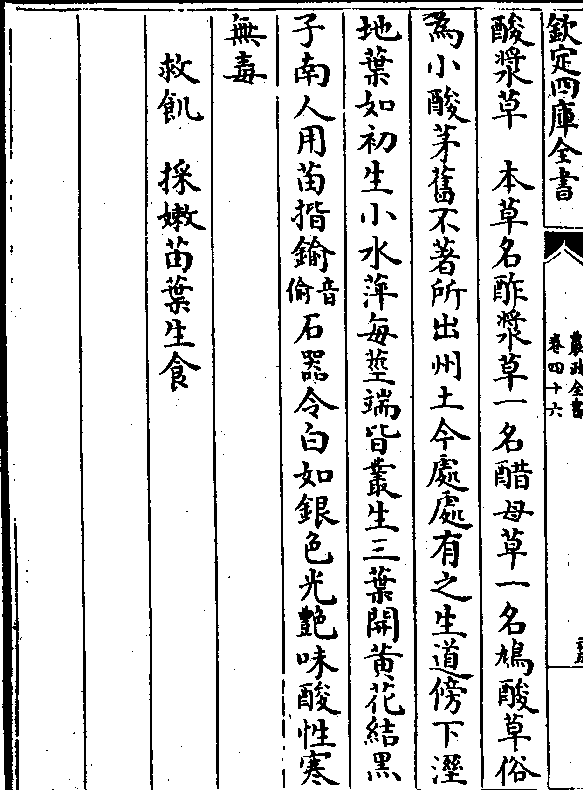 欽定四庫全書
農政全書
卷四十六
酸漿草　本草名酢漿草一名醋母草一名鳩酸草俗
為小酸茅舊不著所出州土今處處有之生道傍下溼
地葉如初生小水萍每莖端皆叢生三葉開黃花結黑
子南人用苗揩鍮音偷石器令白如銀色光艷味酸性寒
無毒
救飢　採嫩苗葉生食